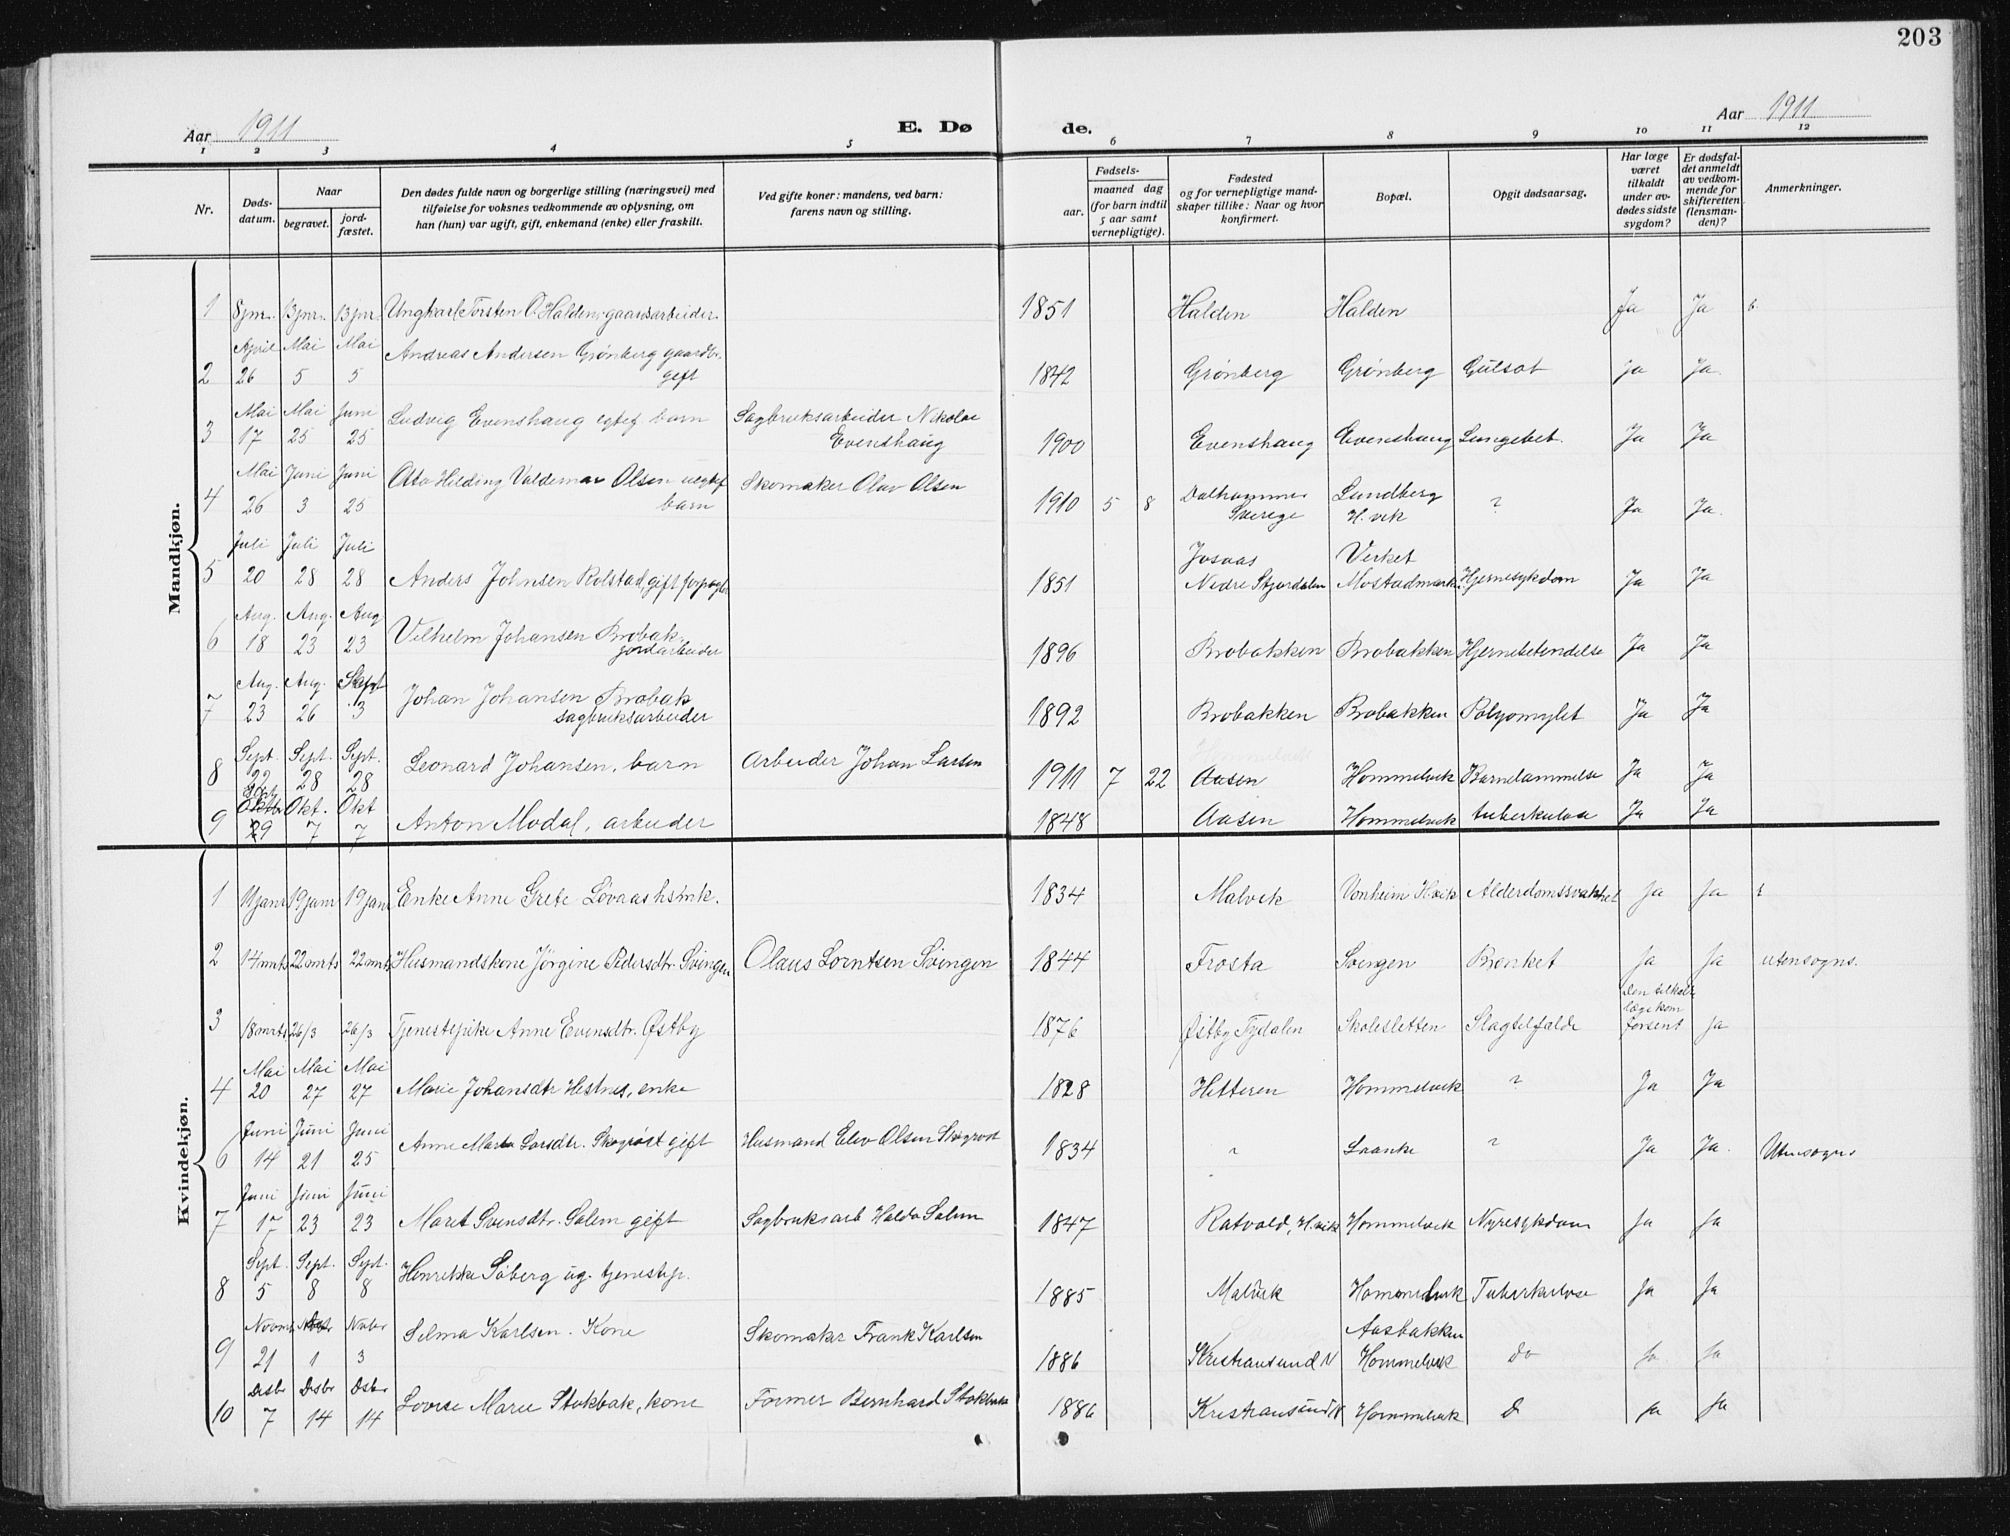 203
Aar 1911
E. Dø
de.
Aar 1911
1 2 3 4 5 6 7 8 9 10 11 12
Nr.
Døds-
datum.
Naar
begravet.
jord-
fæstet.
Den dødes fulde navn og borgerlige stilling (næringsvei) med
tilføielse for voksnes vedkommende av oplysning, om
han (hun) var ugift, gift, enkemand (enke) eller fraskilt.
Ved gifte koner: mandens, ved barn:
farens navn og stilling.
Fødsels-
aar.
maaned dag
(for barn indtil
5 aar samt
vernepligtige).
Fødested
og for vernepligtige mand-
skaper tillike: Naar og hvor
konfirmert.
Bopæl.
Opgit dødsaarsag.
Har læge
været
tilkaldt
under av-
dødes sidste
sygdom?
Er dødsfal-
det anmeldt
av vedkom-
mende for
skifteretten
(lensman-
den)?
Anmerkninger.
Mandkjøn.
1 8 jnr. 13 jnr. 13 jnr. Ungkarl Torsten O. Halden, gaardsarbeider 1851 Halden Halden Ja Ja
April Mai Mai Andreas Andersen Grønberg gaardbr.
2 26 5 5 gift 1842 Grønberg Grønberg Gulsot Ja Ja
Mai Mai Juni Ludvig Evenshaug egtef barn Sagbruksarbeider Nikolai
3 17 25 25 Evenshaug 1900 Evenshaug Evenshaug Lungebet. Ja Ja
Mai Juni Juni Otto Hilding Valdemar Olsen uegtef Skomaker Olav Olsen
4 26 3 25 barn 1910 5 8 Dalhammer Sverige Lundberg H.vik ? Ja Ja
Juli Juli Juli Josaas Verket
5 20 28 28 Anders Johnsen Rolstad, gift forpagter 1851 Nedre Stjørdalen Mostadmarka Hjernesykdom Ja Ja
Aug. Aug. Aug Vilhelm Johansen Brobak
6 18 23 23 jordarbeider 1896 Brobakken Brobakken Hjernebetendelse Ja Ja
Aug. Aug. Sept Johan Johansen Brobak
7 23 26 3 sagbruksarbeider 1892 Brobakken Brobakken Polyomylit Ja Ja
Sept. Sept. Sept.
8 22 28 28 Leonard Johansen, barn Arbeider Johan Larsen 1911 7 22 Aasen Hommelvik Barnelammelse Ja Ja
Sept. Okt. Okt
9 29 7 7 Anton Modal, arbeider 1848 Aasen Hommelvik tuberkulose Ja Ja
Kvindekjøn.
1 11 janr 19 janr 19 janr Enke Anne Grete Løvaas hsmk. 1834 Malvik Vonheim H.vik Alderdomssvakhet Ja Ja
2 14 mrts 22 mrts 22 mrts Husmandskone Jørgine Pedersdtr. Svingen Olaus Lorntsen Svingen 1844 Frosta Svingen Bronket Ja Ja utensogns.
Den tilkaldte læge kom
3 18 mrts 26/3 26/3 Tjenestepike Anne Evensdtr. Østby 1876 Østby Tydalen Skolesletten Slagtilfælde forsent Ja
Mai Mai Mai
4 20 27 27 Marie Johansdtr Hestnes, enke 1828 Hitteren Hommelvik ? Ja Ja
Juni Juni Juni
6 14 21 25 Anne Marta Larsdtr. Skogrøst gift Husmand Elev Olsen Skogrøst 1834 ? Laanke ? Ja Ja. Utensogns
Juni Juni Juni
7 17 23 23 Maret Svensdtr. Salem gift Sagbruksarb Haldo Salem 1847 Ratvold, H.vik Hommelvik Nyresykdom Ja Ja
Sept. Sept. Sept.
8 5 8 8 Henrikke Søberg ug. tjenestep. 1885 Malvik Hommelvik Tuberkulose Ja Ja
Novmr Novbr Aasbakken
9 21 1 3 Selma Karlsen. Kone Skomaker Frank Karlsen 1886 Kristiansund N Hommelvik Do Ja Ja
Desbr Desbr Desbr
10 7 14 14 Lovise Marie Stokbak, kone Former Bernhard Stokbak 1886 Kristiansund N Hommelvik D Ja Ja